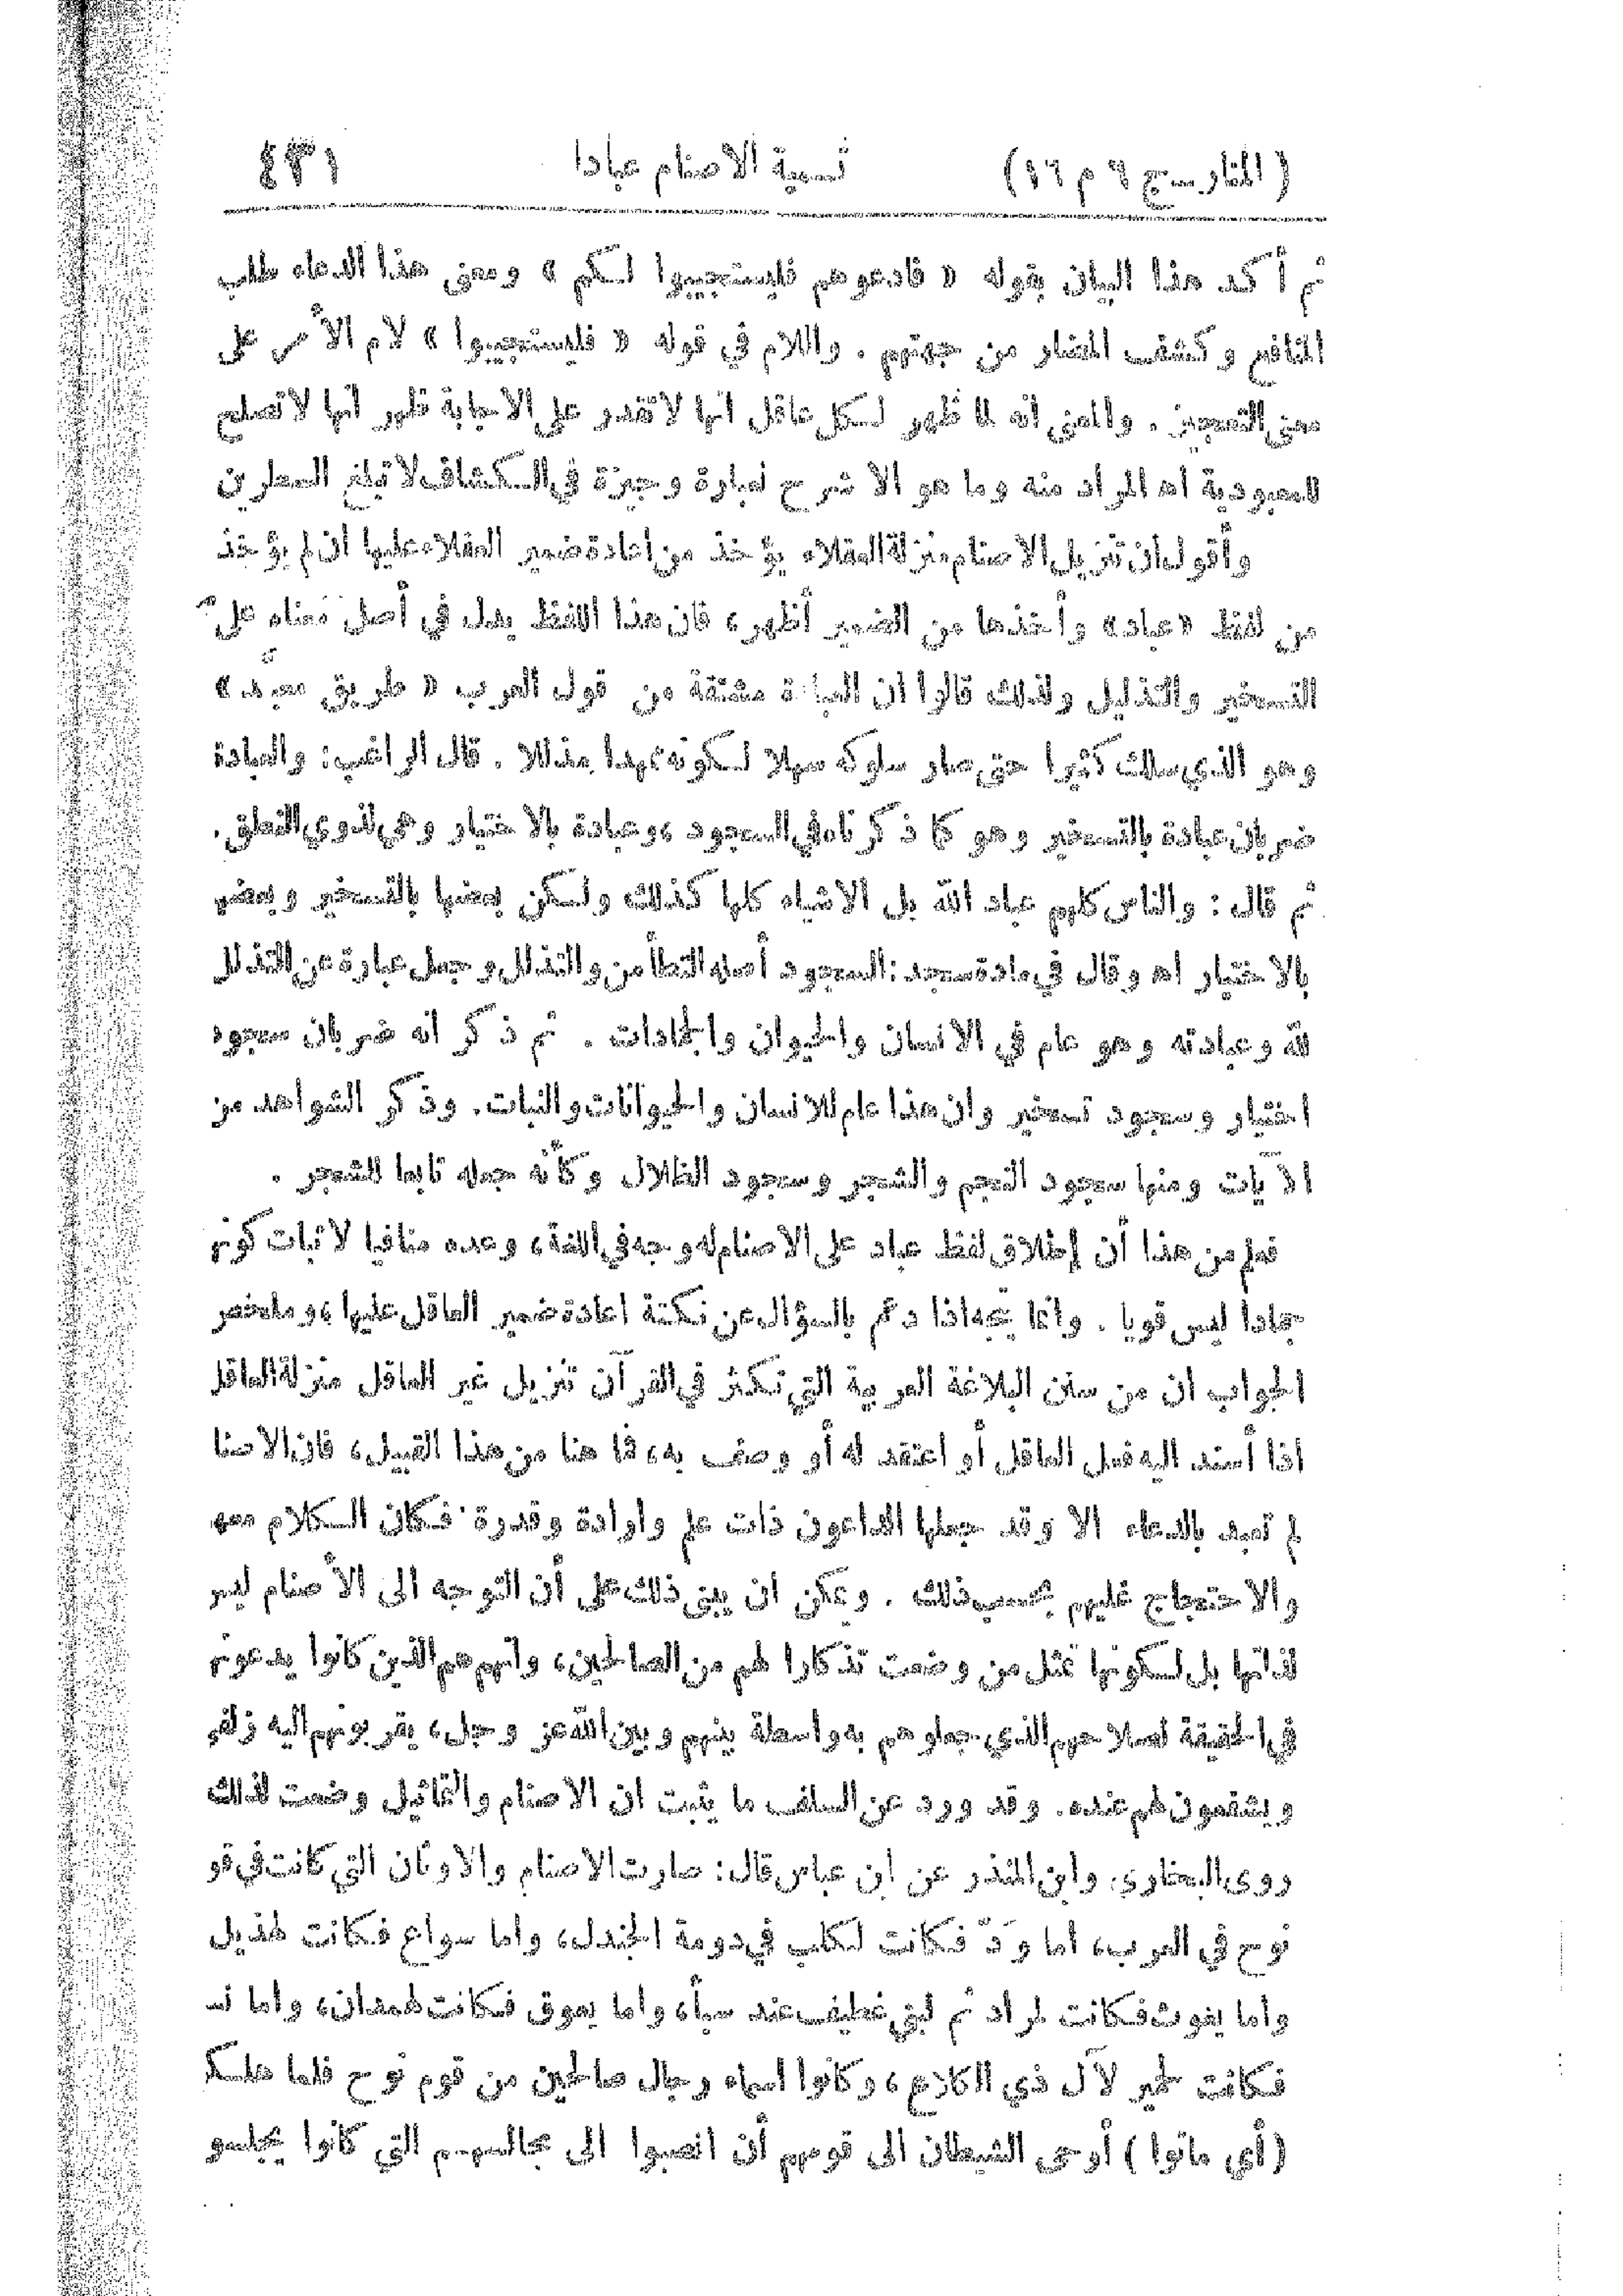 (المنار ـ ج ٩ م ١٦) تسمية الاصنام عبادا ٤٣١
ثم أكد هذا البيان بقوله « فادعوهم فليستجيبوا لكم » ومعنى هذا الدعاء طلب
المنافع وكشف المضار من جهتهم . واللام في قوله « فليستجيبوا » لام الأمر على
معنى التعجيز . والمعنى انه لما ظهر لكل عاقل انها لا تقدر على الاجابة ظهر انها لا تصلح
للمعبودية اه المراد منه وما هو الا شرح لعبارة وجيزة في الكشاف لا تبلغ السطرين
وأقول ان تنزيل الاصنام منزلة العقلاء يؤخذ من إعادة ضمير العقلاء عليها ان لم يؤخذ
من لفظ «عباد» وأخذها من الضمير أظهر، فان هذا اللفظ يدل في أصل معناه على
التسخير والتذليل ولذلك قالوا ان العبادة مشتقة من قول العرب « طريق معبد »
وهو الذي سلك كثيرا حتى صار سلوكه سهلا لكونه ممهدا مذللا . قال الراغب: والعبادة
ضربان عبادة بالتسخير وهو كما ذكرناه في السجود ، وعبادة بالاختيار وهي لذوي النطق.
ثم قال : والناس كلهم عباد الله بل الاشياء كلها كذلك ولكن بعضها بالتسخير وبعضها
بالاختيار اه وقال في مادة سجد : السجود أصله التطأمن والتذلل وجعل عبارة عن التذلل
لله وعبادته وهو عام في الانسان والحيوان والجمادات . ثم ذكر انه ضربان سجود
اختيار وسجود تسخير وان هذا عام للانسان والحيوانات والنبات. وذكر الشواهد من
الآيات ومنها سجود النجم والشجر وسجود الظلال وكأنه جعله تابعا للشجر .
فعلم من هذا أن إطلاق لفظ عباد على الاصنام له وجه في اللغة، وعده منافيا لاثبات كونها
جمادا ليس قويا . وانما يتجه اذا دعم بالسؤال عن نكتة اعادة ضمير العاقل عليها ، وملخص
الجواب ان من سنن البلاغة العربية التي تكثر في القرآن تنزيل غير العاقل منزلة العاقل
اذا أسند اليه فعل العاقل أو اعتقد له أو وصف به، فما هنا من هذا القبيل، فان الاصنا
لم تعبد بالدعاء الا وقد جعلها الداعون ذات علم وارادة وقدرة فكان الكلام معهم
والاحتجاج عليهم بحسب ذلك . ويمكن ان يبنى ذلك على أن التوجه الى الأصنام ليس
لذاتها بل لكونها تمثل من وضعت تذكارا لهم من الصالحين، وانهم هم الذين كانوا يدعونهم
في الحقيقة لصلاحهم الذي جعلوهم به واسطة بينهم وبين الله عز وجل، يقربونهم اليه زلفى
ويشفعون لهم عنده. وقد ورد عن السلف ما يثبت ان الاصنام والتماثيل وضعت لذلك
روى البخاري وابن المنذر عن ابن عباس قال: صارت الاصنام والاوثان التي كانت في قو
نوح في العرب، اما ودّ فكانت لكلب في دومة الجندل، واما سواع فكانت لهذيل
واما يغوث فكانت لمراد ثم لبني غطيف عند سبأ، واما يعوق فكانت لهمدان، واما نسـ
فكانت لحمير لآل ذي الكلاع، وكانوا اسماء رجال صالحين من قوم نوح فلما هلكـ
(أي ماتوا) أوحى الشيطان الى قومهم أن انصبوا الى مجالسهم التي كانوا يجلسو